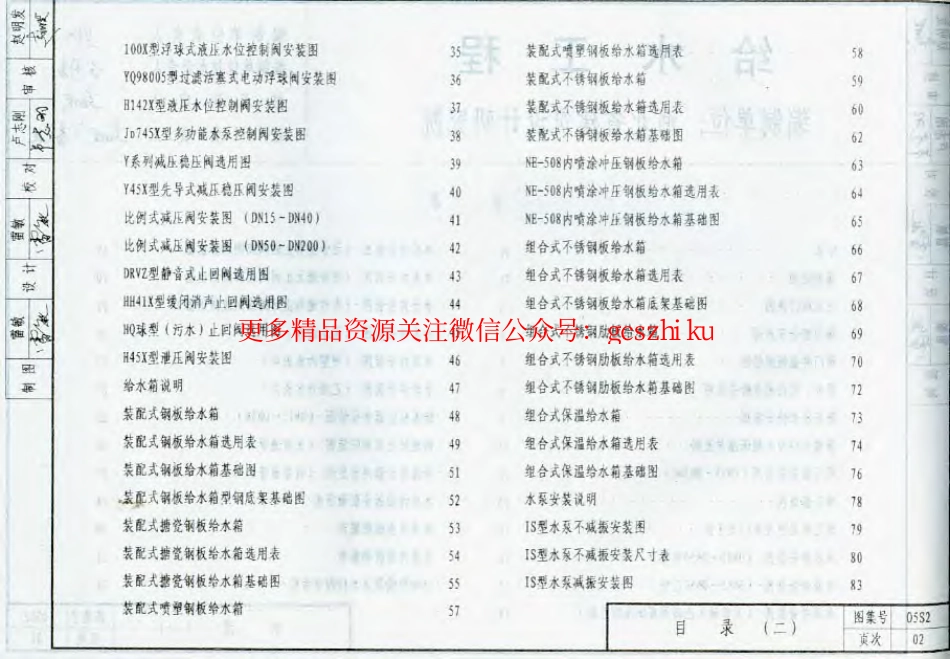 100X型浮球式液压水位控制阀安装图 35
YQ98005型过滤活塞式电动浮球阀安装图 36
H142X型液压水位控制阀安装图 37
JD745X型多功能水泵控制阀安装图 38
Y系列减压稳压阀选用图 39
Y45X型先导式减压稳压阀安装图 40
比例式减压阀安装图 (DN15~DN40) 41
比例式减压阀安装图 (DN50~DN200) 42
DRVZ型静音式止回阀选用图 43
HH41X型缓闭消声止回阀选用图 44
HQ球型(污水)止回阀选用图 45
H45X型泄压阀安装图 46
给水箱说明 47
装配式钢板给水箱 48
装配式钢板给水箱选用表 49
装配式钢板给水箱基础图 51
装配式钢板给水箱型钢底架基础图 52
装配式搪瓷钢板给水箱 53
装配式搪瓷钢板给水箱选用表 54
装配式搪瓷钢板给水箱基础图 55
装配式喷塑钢板给水箱 57
装配式喷塑钢板给水箱选用表 58
装配式不锈钢板给水箱 59
装配式不锈钢板给水箱选用表 60
装配式不锈钢板给水箱基础图 62
NE-508内喷涂冲压钢板给水箱 63
NE-508内喷涂冲压钢板给水箱选用表 64
NE-508内喷涂冲压钢板给水箱基础图 65
组合式不锈钢板给水箱 66
组合式不锈钢板给水箱选用表 67
组合式不锈钢板给水箱底架基础图 68
组合式不锈钢肋板给水箱 69
组合式不锈钢肋板给水箱选用表 70
组合式不锈钢肋板给水箱基础图 72
组合式保温给水箱 73
组合式保温给水箱选用表 74
组合式保温给水箱基础图 76
水泵安装说明 78
IS型水泵不减振安装图 79
IS型水泵不减振安装尺寸表 80
IS型水泵减振安装图 83
更多精品资源关注微信公众号:gcszhiku
目 录 (二)
图集号 05S2
页次 02
赵明发
审 核
卢志刚
校 对
雷敏
设 计
雷敏
制 图